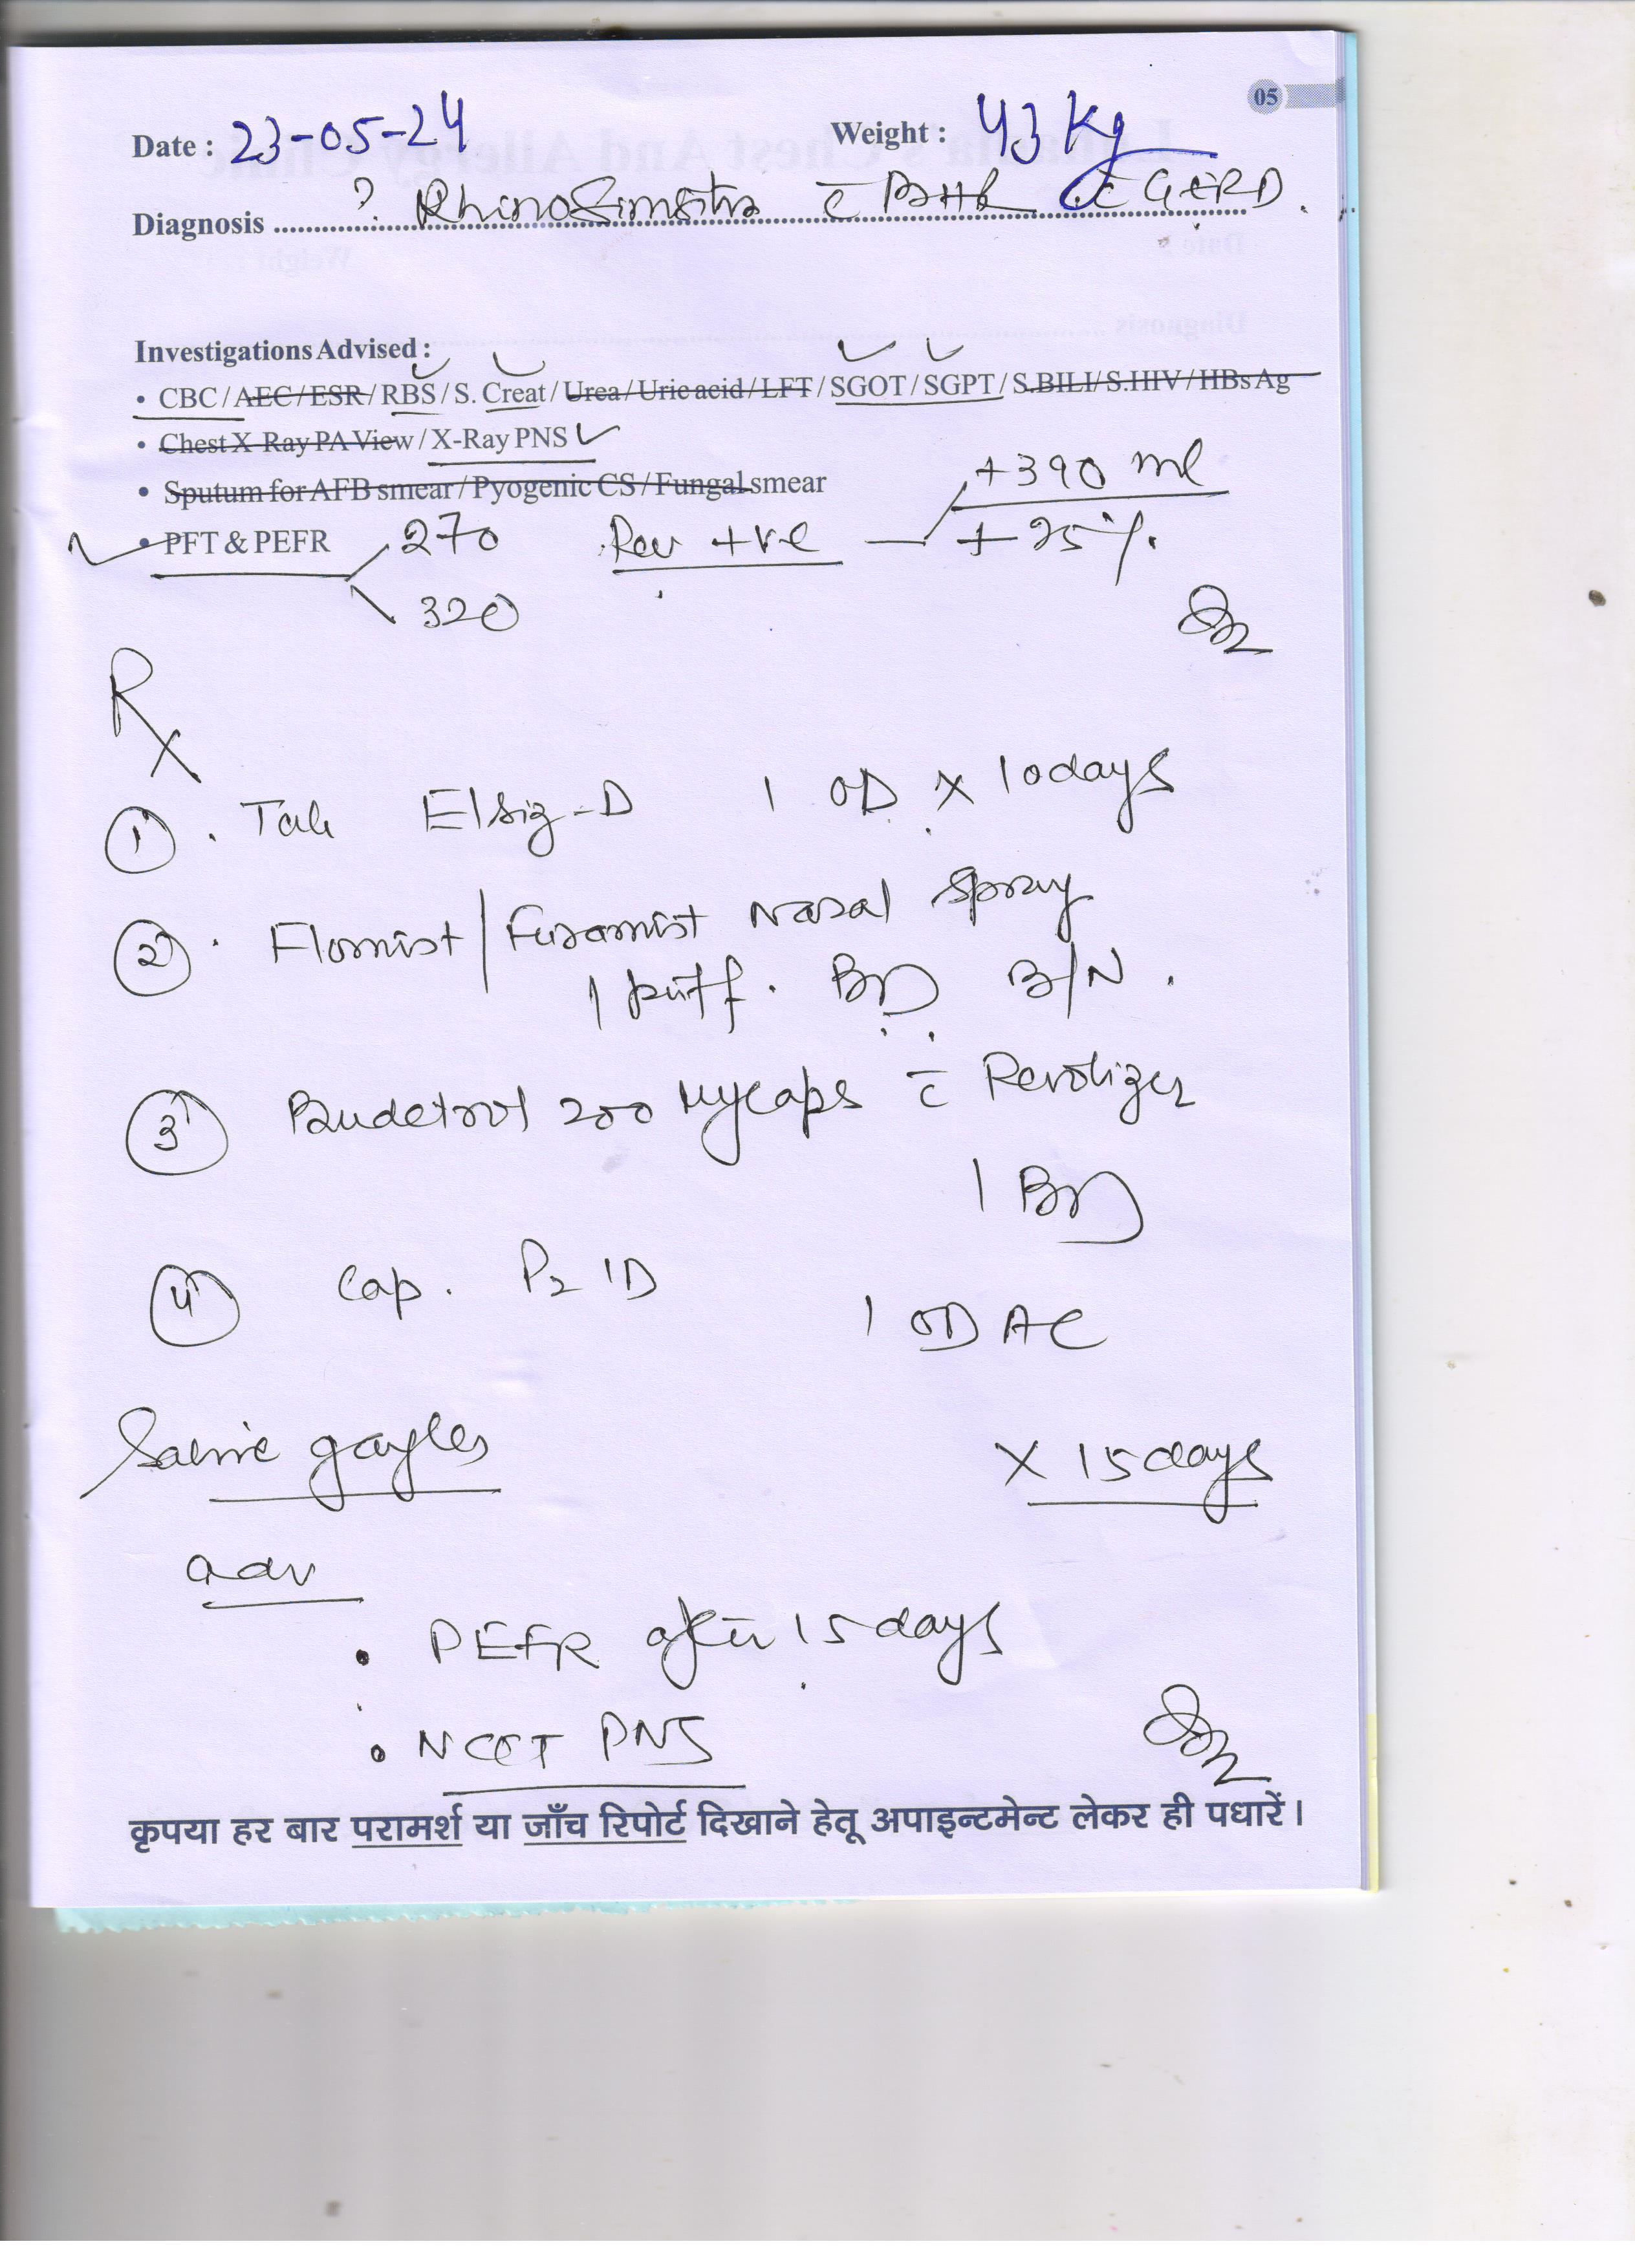 05
Date : 23-05-24 Weight : 43 Kg
Diagnosis ? Rhinosinusitis c̄ BHR c̄ GERD.
Investigations Advised :
• CBC / AEC / ESR / RBS / S. Creat / Urea / Uric acid / LFT / SGOT / SGPT / S.BILI / S.HIV / HBsAg
• Chest X-Ray PA View / X-Ray PNS ✓
• Sputum for AFB smear / Pyogenic CS / Fungal smear +390 ml
• PFT & PEFR 270 Rev +ve +25%.
320
Rx
① Tab Elsig-D 1 OD x 10days
② Flomist / Furamist Nasal Spray
1 puff. BD B/N.
③ Budetrol 200 Mycaps c̄ Revolizer
1 BD
④ Cap. Pz ID
1 OD AC
Saline gargles x 15days
adv
• PEFR after 15 days
• NCCT PNS
कृपया हर बार परामर्श या जाँच रिपोर्ट दिखाने हेतू अपाइन्टमेन्ट लेकर ही पधारें।